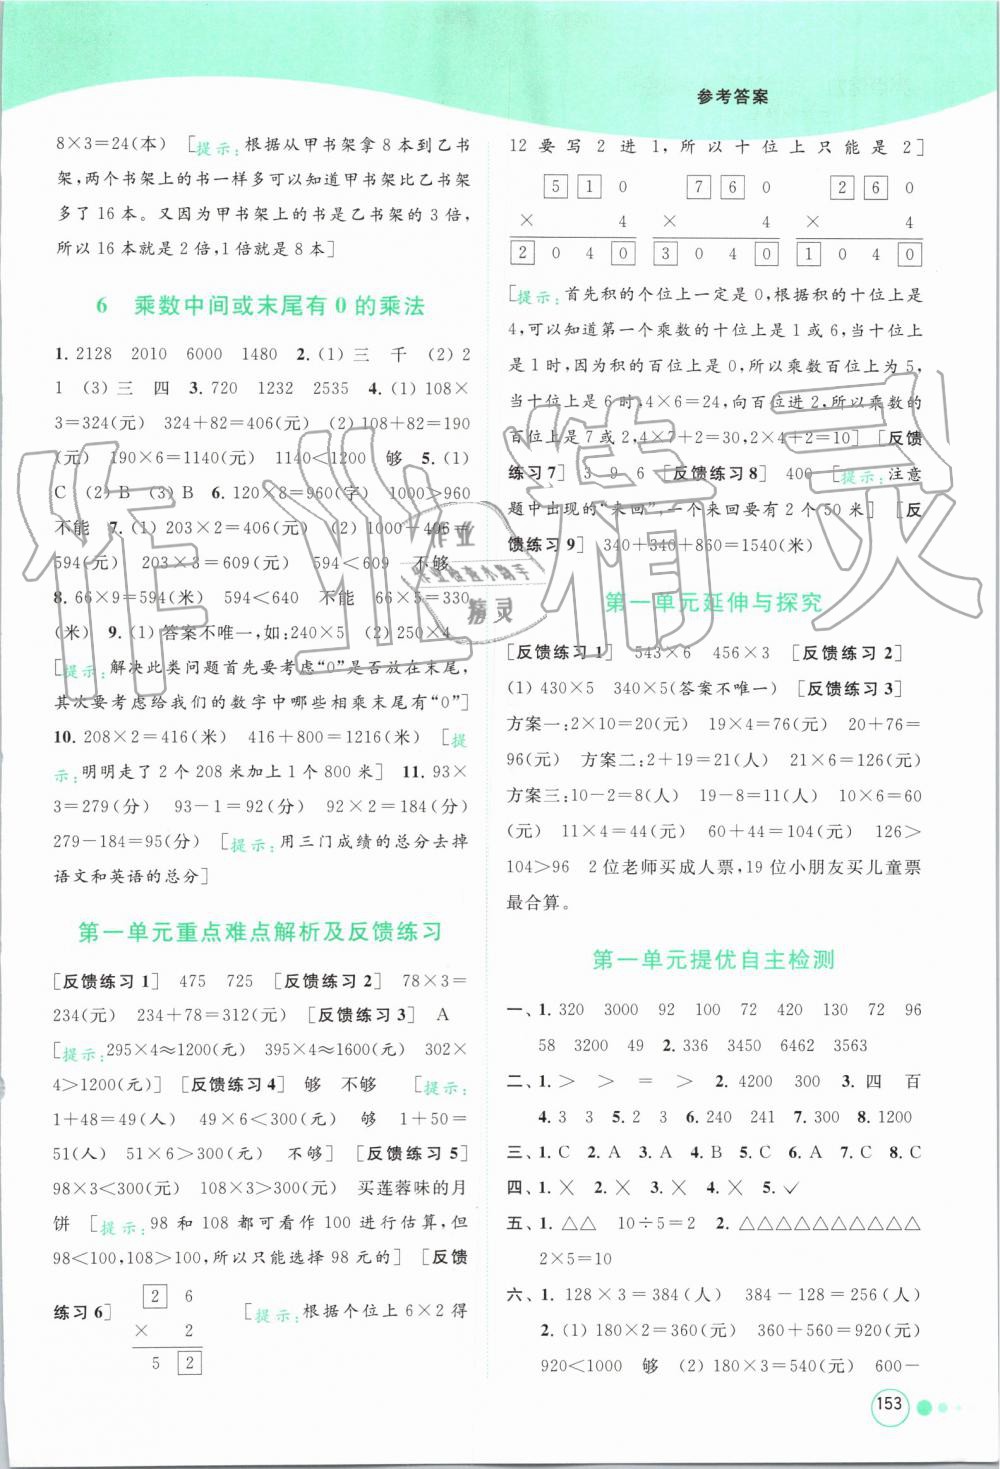 参考答案
8×3=24(本) [提示:根据从甲书架拿8本到乙书
架,两个书架上的书一样多可以知道甲书架比乙书架
多了16本。又因为甲书架上的书是乙书架的3倍,
所以16本就是2倍,1倍就是8本]
6 乘数中间或末尾有0的乘法
1. 2128 2010 6000 1480 2. (1) 三 千 (2) 2
1 (3) 三 四 3. 720 1232 2535 4. (1) 108×
3=324(元) 324+82=406(元) (2) 108+82=190
(元) 190×6=1140(元) 1140<1200 够 5. (1)
C (2) B (3) B 6. 120×8=960(字) 1000>960
不能 7. (1) 203×2=406(元) (2) 1000-406=
594(元) 203×3=609(元) 594<609 不够
8. 66×9=594(米) 594<640 不能 66×5=330
(米) 9. (1) 答案不唯一,如:240×5 (2) 250×4
[提示:解决此类问题首先要考虑“0”是否放在末尾,
其次要考虑给我们的数字中哪些相乘末尾有“0”]
10. 208×2=416(米) 416+800=1216(米) [提
示:明明走了2个208米加上1个800米] 11. 93×
3=279(分) 93-1=92(分) 92×2=184(分)
279-184=95(分) [提示:用三门成绩的总分去掉
语文和英语的总分]
第一单元重点难点解析及反馈练习
[反馈练习1] 475 725 [反馈练习2] 78×3=
234(元) 234+78=312(元) [反馈练习3] A
[提示:295×4≈1200(元) 395×4≈1600(元) 302×
4>1200(元)] [反馈练习4] 够 不够 [提示:
1+48=49(人) 49×6<300(元) 够 1+50=
51(人) 51×6>300(元) 不够] [反馈练习5]
98×3<300(元) 108×3>300(元) 买莲蓉味的月
饼 [提示:98和108都可看作100进行估算,但
98<100,108>100,所以只能选择98元的] [反馈
练习6] 2 6
× 2
5 2
[提示:根据个位上6×2得
12要写2进1,所以十位上只能是2]
5 1 0 7 6 0 2 6 0
× 4 × 4 × 4
2 0 4 0 3 0 4 0 1 0 4 0
[提示:首先积的个位上一定是0,根据积的十位上是
4,可以知道第一个乘数的十位上是1或6,当十位上
是1时,因为积的百位上是0,所以乘数百位上为5,
当十位上是6时,4×6=24,向百位进2,所以乘数的
百位上是7或2,4×7+2=30,2×4+2=10] [反馈
练习7] 3 9 6 [反馈练习8] 400 [提示:注意
题中出现的“来回”,一个来回要有2个50米] [反
馈练习9] 340+340+860=1540(米)
第一单元延伸与探究
[反馈练习1] 543×6 456×3 [反馈练习2]
(1) 430×5 340×5(答案不唯一) [反馈练习3]
方案一:2×10=20(元) 19×4=76(元) 20+76=
96(元) 方案二:2+19=21(人) 21×6=126(元)
方案三:10-2=8(人) 19-8=11(人) 10×6=60
(元) 11×4=44(元) 60+44=104(元) 126>
104>96 2位老师买成人票,19位小朋友买儿童票
最合算。
第一单元提优自主检测
一、1. 320 3000 92 100 72 420 130 72 96
58 3200 49 2. 336 3450 6462 3563
二、1. > > = > 2. 4200 300 3. 四 百
4. 3 3 5. 2 6. 240 241 7. 300 8. 1200
三、1. C 2. A 3. A 4. B 5. C 6. A 7. C 8. C
四、1. × 2. × 3. × 4. × 5. ✓
五、1. △△ 10÷5=2 2. △△△△△△△△△△
2×5=10
六、1. 128×3=384(人) 384-128=256(人)
2. (1) 180×2=360(元) 360+560=920(元)
920<1000 够 (2) 180×3=540(元) 600-
153
作业精灵
作业
作业检查小助手
精灵